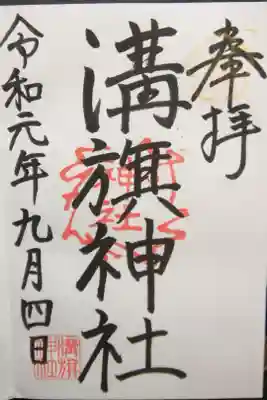 奉拝
溝旗神社
令和元年九月四日